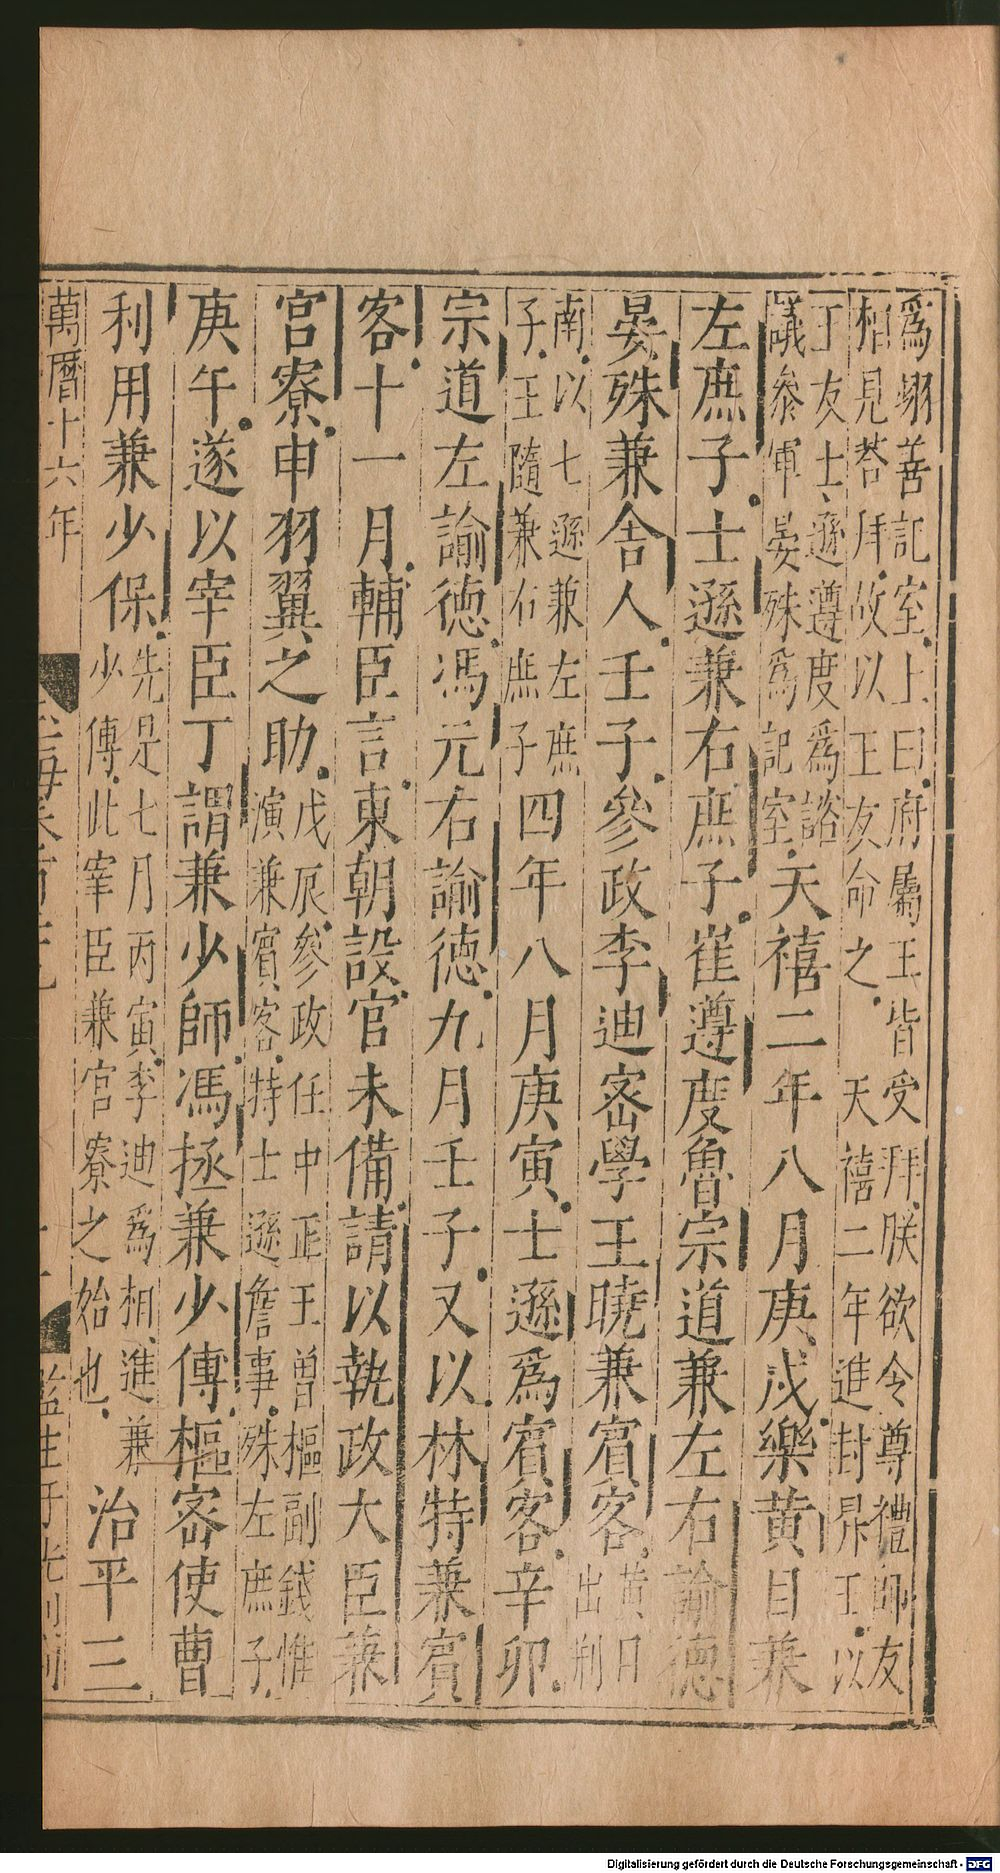 爲翊善記室上曰府屬王皆受拜朕欲令尊禮師友
相見答拜故以王友命之 天禧二年進封昇王以
丁友士遜遵度爲諮
議參軍晏殊爲記室天禧二年八月庚戌樂黃目兼
左庶子士遜兼右庶子崔遵度魯宗道兼左右諭德
晏殊兼舍人壬子參政李迪密學王曉兼賓客黃目
出荆
南以七遜兼左庶
子王隨兼右庶子四年八月庚寅士遜爲賓客辛卯
宗道左諭德馮元右諭德九月壬子又以林特兼賓
客十一月輔臣言東朝設官未備請以執政大臣兼
宮寮申羽翼之助戊辰參政任中正王曾樞副錢惟
演兼賓客特士遜詹事殊左庶子
庚午遂以宰臣丁謂兼少師馮拯兼少傅樞密使曹
利用兼少保先是七月丙寅李迪爲相進兼
少傅此宰臣兼官寮之始也治平三
萬曆十六年
Digitalisierung gefördert durch die Deutsche Forschungsgemeinschaft - DFG